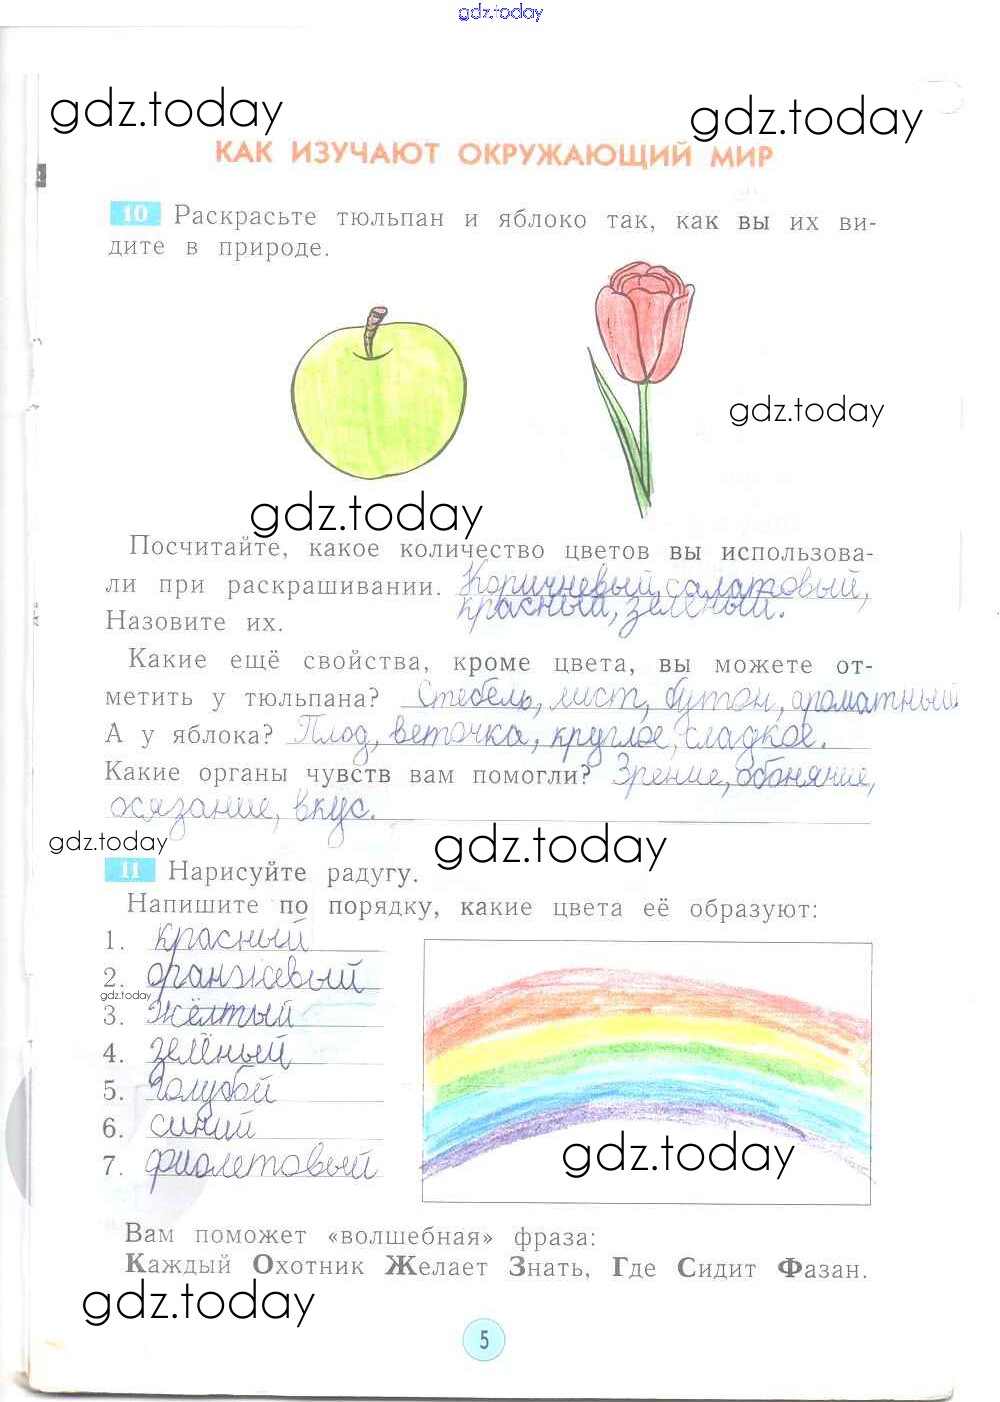 gdz.today
gdz.today
gdz.today
КАК ИЗУЧАЮТ ОКРУЖАЮЩИЙ МИР
10 Раскрасьте тюльпан и яблоко так, как вы их ви-
дите в природе.
gdz.today
gdz.today
Посчитайте, какое количество цветов вы использова-
ли при раскрашивании. Коричневый, салатовый,
красный, зелёный.
Назовите их.
Какие ещё свойства, кроме цвета, вы можете от-
метить у тюльпана? Стебель, лист, бутон, ароматный
А у яблока? Плод, веточка, круглое, сладкое.
Какие органы чувств вам помогли? Зрение, обоняние,
осязание, вкус.
gdz.today
gdz.today
11 Нарисуйте радугу.
Напишите по порядку, какие цвета её образуют:
1. красный
2. оранжевый
gdz.today
3. жёлтый
4. зелёный
5. голубой
6. синий
7. фиолетовый
gdz.today
Вам поможет «волшебная» фраза:
Каждый Охотник Желает Знать, Где Сидит Фазан.
gdz.today
5